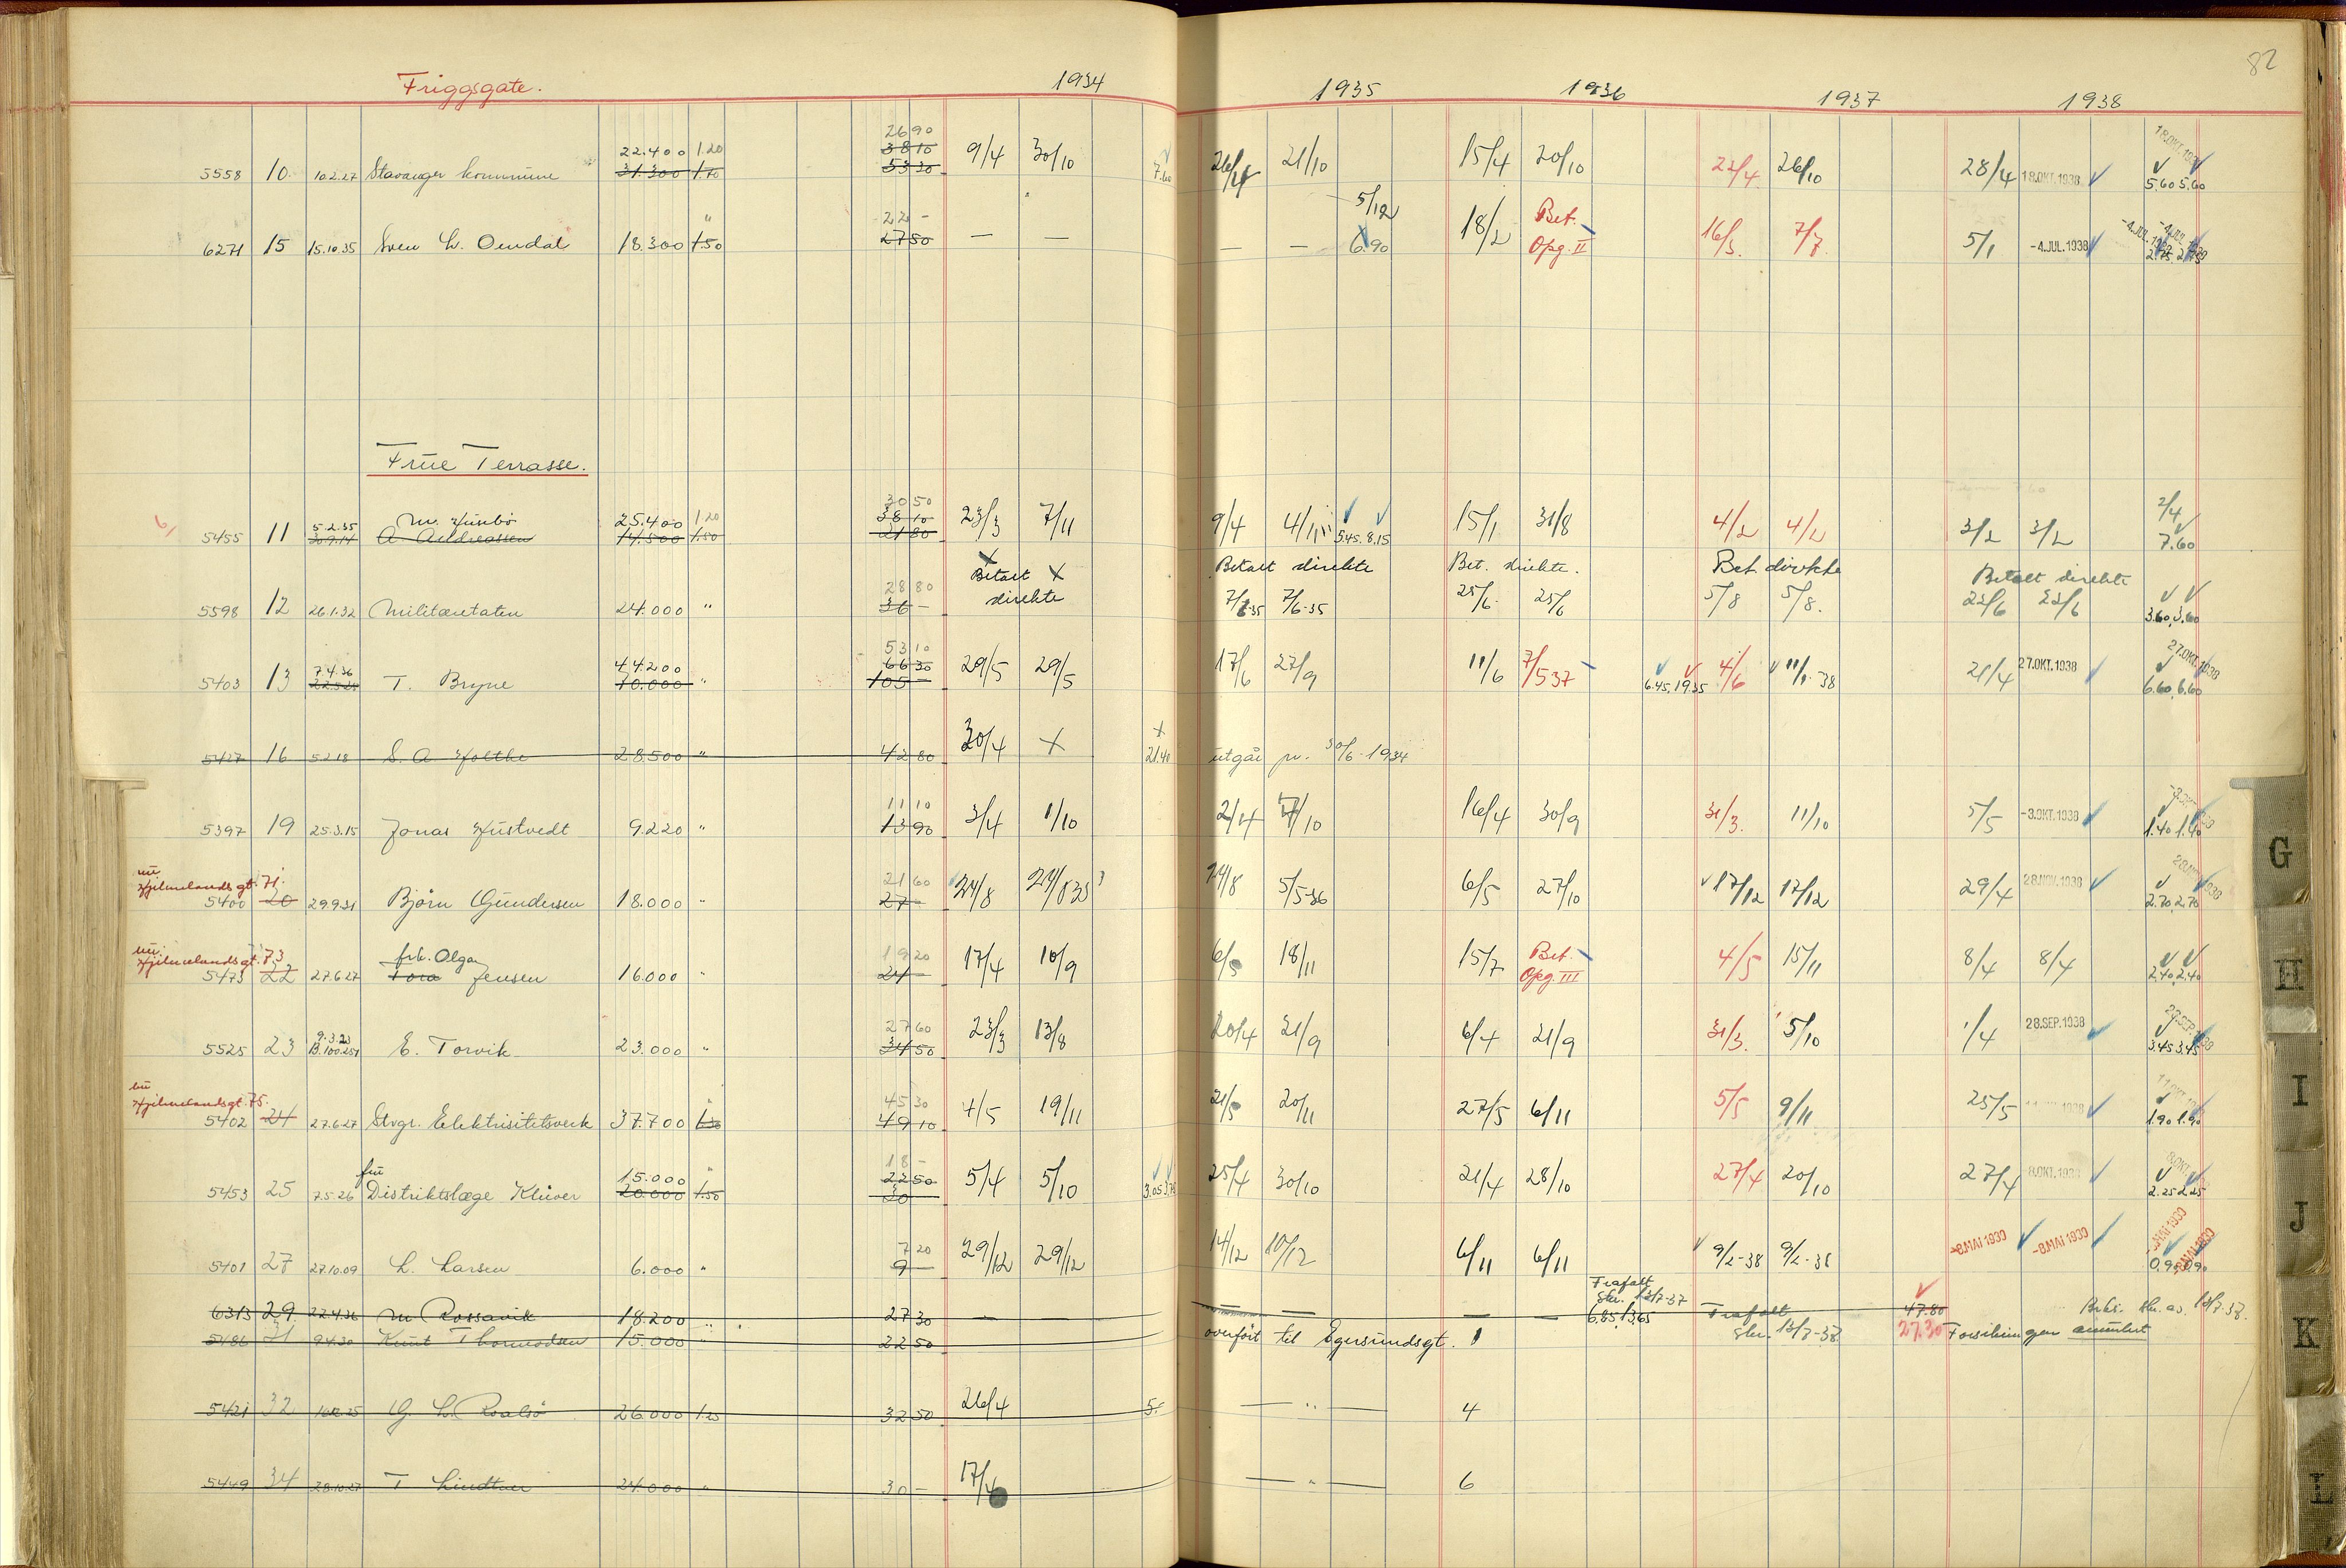 82
Friggsgate. 1934 1935 1936 1937 1938
26 90
22.400 1.20 38 10 18.OKT.1938
5558 10. 10.2.27 Stavanger kommune 31.300 1.70 53 30 9/4 30/10 7.60 26/4 21/10 15/4 20/10 22/4 26/10 28/4 18.OKT.1938 5.60 5.60
22 - 5/12 Bet. -4.JUL.1938 -4.JUL.1938
6271 15 15.10.35 Sven L. Omdal 18.300 1.50 27 50 — — — — 6.90 18/2 Opg. II 16/3. 7/7. 5/1 -4.JUL.1938 2.75. 2.75
Frue Terrasse.
30 50
5.2.35 M. 25.400 1.20 38 10 2/4
5455 11 30.9.14 A Andreassen 14.500 1.50 21 80 23/3 7/11 9/4 4/11 5.45. 8.15 15/1 31/8 4/2 4/2 3/2 3/2 7.60
Betalt X Betalt direkte Bet. direkte. Bet. direkte Betalt direkte
28 80
5598 12 26.1.32 Militæretaten 24.000 " 36 - direkte 7/6-35 7/6-35 25/6- 25/6 5/8 5/8. 22/6 22/6 3.60, 3.60
53 10
7.4.36 44.200 66 30 27.OKT.1938
5403 13 22.5.28 T. Bryne 70.000 " 105 - 29/5 29/5 17/6 27/9 11/6 7/5 37 6.45. 19.35 4/6 11/1-38 21/4 27.OKT.1938 6.60, 6.60
5427 16 5.2.18 S. A Holthe 28.500 " 42 80 30/4 X 21.40 utgår pr. 30/6-1934
11 10
5397 19 25.3.15 Jonas Hustvedt 9.220 " 13 90 3/4 1/10 2/4 4/10 16/4 30/9 31/3. 11/10 5/5 -3.OKT.1938 1.40 1.40
nu
Hjelmelands gt. 71. 21 60 28.NOV.1938
5400 20 29.9.31 Bjørn Gundersen 18.000 " 27 - 24/8 24/8 35 24/8 5/5-36 6/5 27/10 17/12 17/12 29/4 28.NOV.1938 2.70, 2.70
nu
Hjelmelandsgt. 73 frk. Olga 19 20 Bet.
5473 22 27.6.27 Tora Jensen 16.000 " 24 - 17/4 10/9 6/5 18/11 15/7 Opg. III 4/5 15/11 8/4 8/4 2.40, 2.40
9.3.23 27 60
5525 23 B.100.251 E. Torvik 23.000 " 34 50 23/3 13/8 20/4 21/9 6/4 21/9 31/3. 5/10 1/4 28.SEP.1938 3.45 3.45
nu
Hjelmelandsgt. 75. 45 30
5402 24 27.6.27 Stvgr. Elektrisitetsverk 37.700 1.30 49 10 4/5 19/11 21/5 20/11 27/5 6/11 5/5 9/11 25/5 1.90 1.90
fru 15.000 18 -
22 50
5453 25 7.5.26 Distriktslæge Klüver 20.000 1.50 30 5/4 5/10 3.05 3.75 25/4 30/10 21/4 28/10 27/4 20/10 27/4 8.OKT.1938 2.25 2.25
7 20
5401 27 27.10.09 L. Larsen 6.000 " 9 - 29/12 29/12 14/12 10/12 6/11 6/11 9/2-38 9/2-38 -8.MAI 1939 -8.MAI 1939 0.90, 0.90
Frafalt
skr. 13/7-37
6313 29. 22.4.36 M Rossavik 18.200 " 27 30 — — — — — 6.85, 13.65 Frafalt 47.80
skr. 13/7-37. 27.30 Forsikringen annulert
5486 31 9.4.30 Knut Thormodsen 15.000 " 22 50 overført til Egersundsgt. 1
5421 32 G. L. 26.000 1.25 32 50 26/4 5.- — " — 4
5449 34 28.10.27 T Lindtner 24.000 " 30 - 17/4 — " — 6
G
H
I
J
K
L